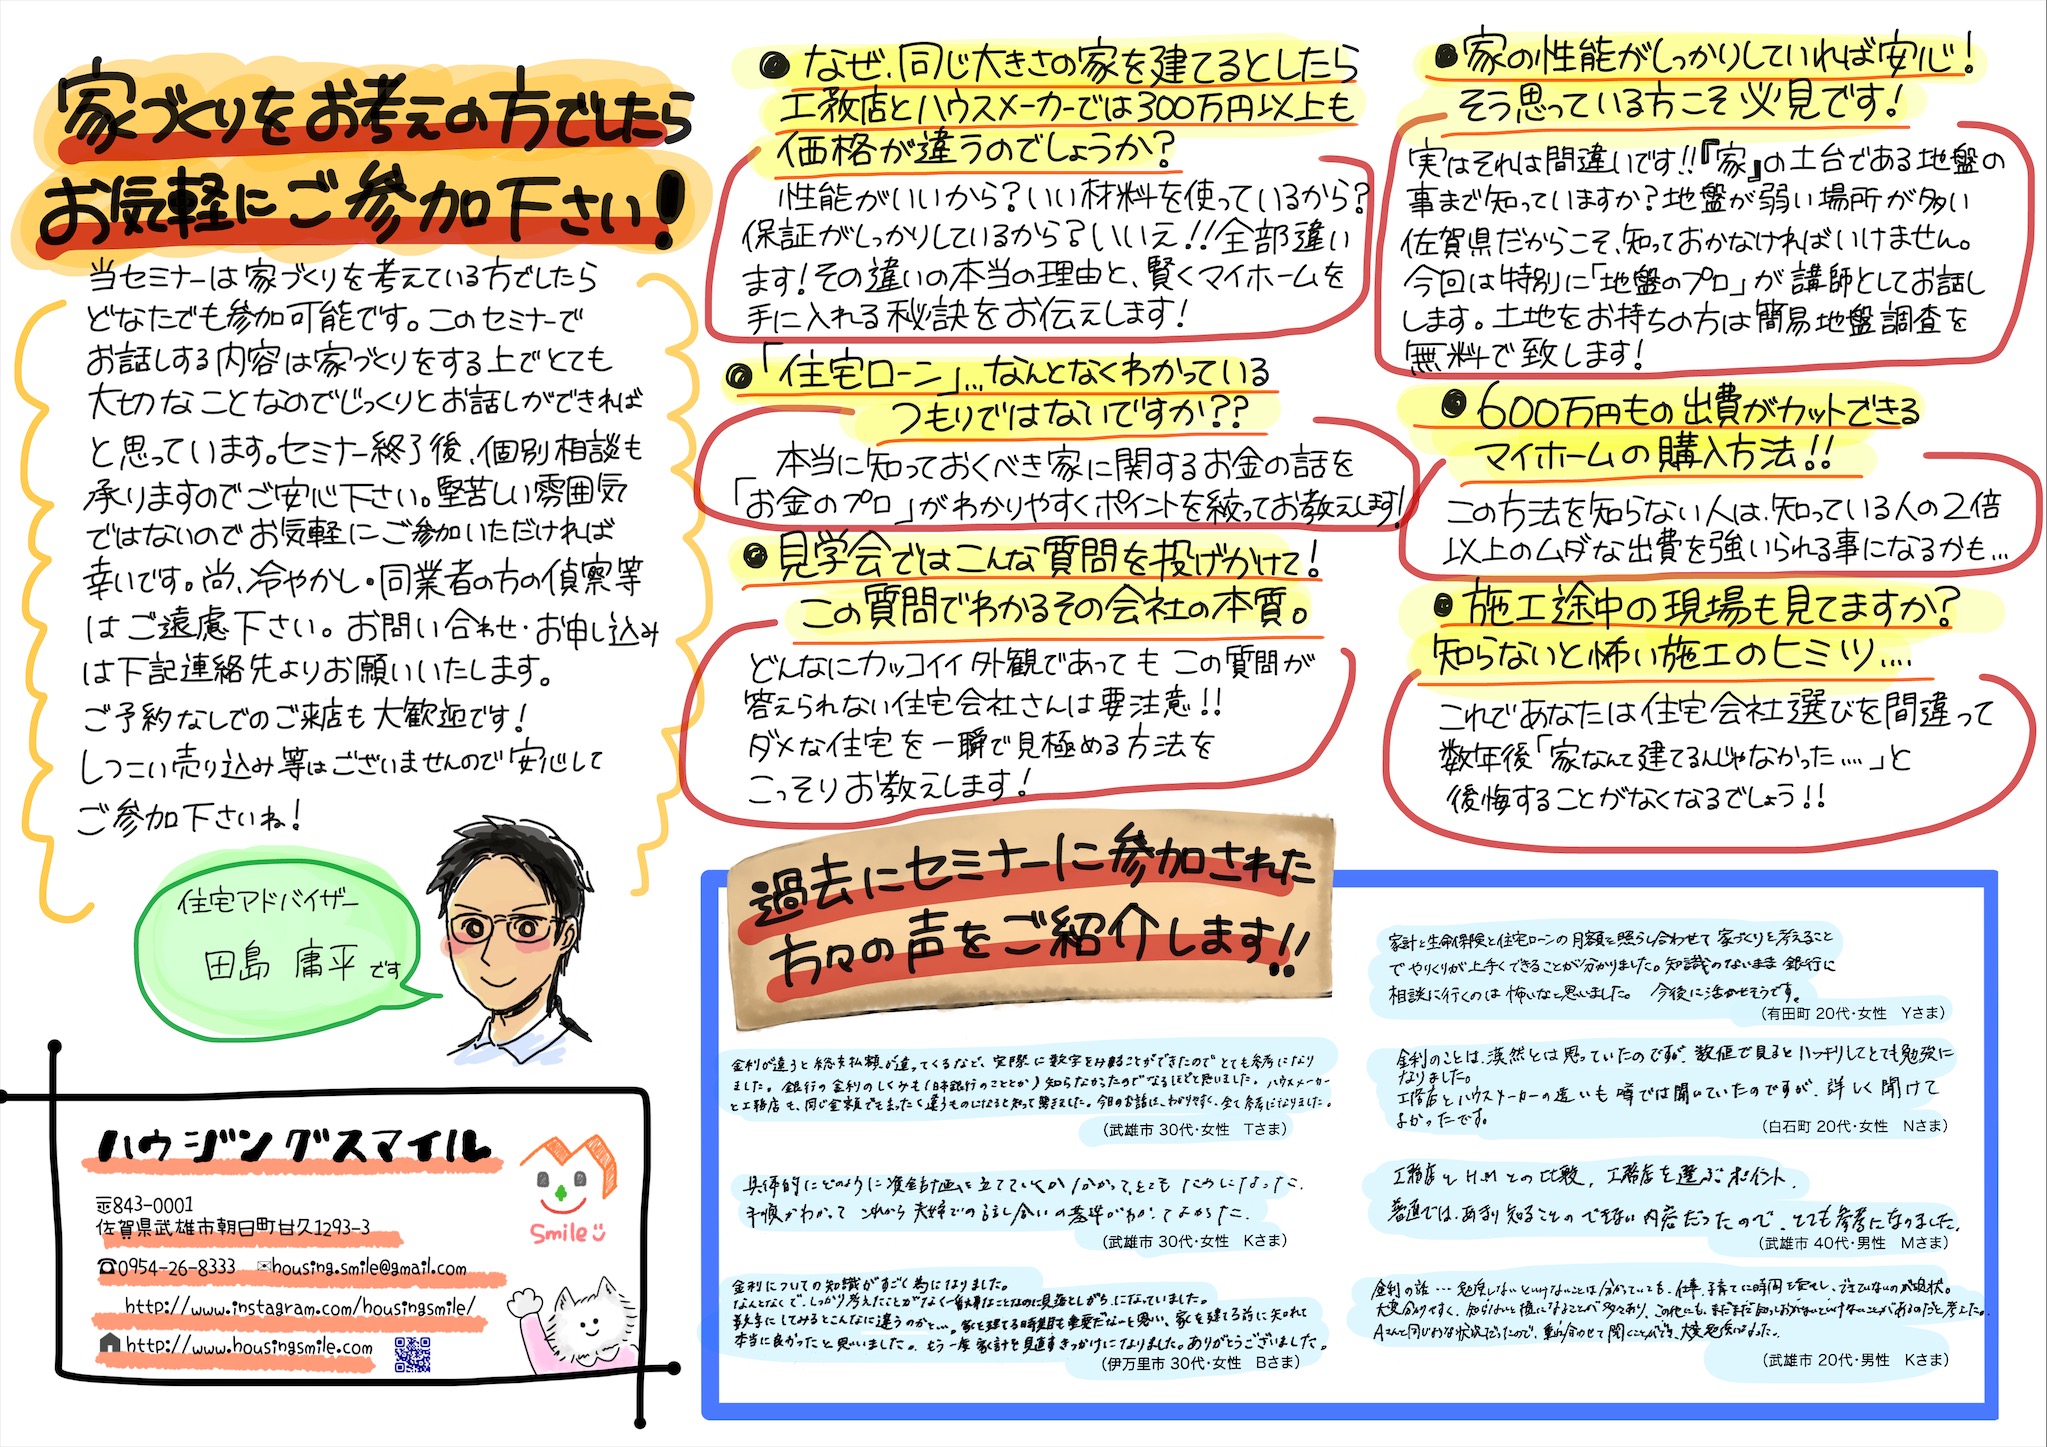 家づくりをお考えの方でしたら
お気軽にご参加下さい!
当セミナーは家づくりを考えている方でしたら
どなたでも参加可能です。このセミナーで
お話しする内容は家づくりをする上でとても
大切なことなのでじっくりとお話しができれば
と思っています。セミナー終了後、個別相談も
承りますのでご安心下さい。堅苦しい雰囲気
ではないのでお気軽にご参加いただければ
幸いです。尚、冷やかし・同業者の方の偵察等
はご遠慮下さい。お問い合わせ・お申し込み
は下記連絡先よりお願いいたします。
ご予約なしでのご来店も大歓迎です!
しつこい売り込み等はございませんので安心して
ご参加下さいね!
住宅アドバイザー
田島 庸平です
ハウジングスマイル
〒843-0001
佐賀県武雄市朝日町甘久1293-3
☎0954-26-8333 ✉housing.smile@gmail.com
http://www.instagram.com/housingsmile/
http://www.housingsmile.com
Smile
●なぜ、同じ大きさの家を建てるとしたら
工務店とハウスメーカーでは300万円以上も
価格が違うのでしょうか?
性能がいいから?いい材料を使っているから?
保証がしっかりしているから?いいえ!!全部違い
ます!その違いの本当の理由と、賢くマイホームを
手に入れる秘訣をお伝えします!
●「住宅ローン」...なんとなくわかっている
つもりではないですか??
本当に知っておくべき家に関するお金の話を
「お金のプロ」がわかりやすくポイントを絞ってお教えします!
●見学会ではこんな質問を投げかけて!
この質問でわかるその会社の本質。
どんなにカッコイイ外観であってもこの質問が
答えられない住宅会社さんは要注意!!
ダメな住宅を一瞬で見極める方法を
こっそりお教えします!
●家の性能がしっかりしていれば安心!
そう思っている方こそ必見です!
実はそれは間違いです!!『家』の土台である地盤の
事まで知っていますか?地盤が弱い場所が多い
佐賀県だからこそ、知っておかなければいけません。
今回は特別に「地盤のプロ」が講師としてお話し
します。土地をお持ちの方は簡易地盤調査を
無料で致します!
●600万円もの出費がカットできる
マイホームの購入方法!!
この方法を知らない人は、知っている人の2倍
以上のムダな出費を強いられる事になるかも...
●施工途中の現場も見てますか?
知らないと怖い施工のヒミツ....
これであなたは住宅会社選びを間違って
数年後「家なんて建てるんじゃなかった....」と
後悔することがなくなるでしょう!!
過去にセミナーに参加された
方々の声をご紹介します!!
金利が違うと総支払額が違ってくるなど、実際に数字をみることができたのでとても参考になり
ました。銀行の金利のしくみも(日本銀行のこととか)知らなかったのでなるほどと思いました。ハウスメーカー
と工務店も、同じ金額でもまったく違うものになると知って驚きました。今日のお話は、わかりやすく、全て参考になりました。
(武雄市 30代・女性 Tさま)
具体的にどのように資金計画を立てていくか分かって、とてもためになった。
手順がわかって これから夫婦での話し合いの基準がわかってよかった。
(武雄市 30代・女性 Kさま)
金利についての知識がすごく為になりました。
なんとなくで、しっかり考えたことがなく一番大事なことなのに見落としがちになっていました。
数字にしてみるとこんなに違うのかと...。家を建てる時期も重要だなーと思い、家を建てる前に知れて
本当に良かったと思いました。もう一度家計を見直すきっかけになりました。ありがとうございました。
(伊万里市 30代・女性 Bさま)
家計と生命保険と住宅ローンの月額を照らし合わせて家づくりを考えること
でやりくりが上手くできることが分かりました。知識のないまま銀行に
相談に行くのは怖いなと思いました。 今後に活かせそうです。
(有田町 20代・女性 Yさま)
金利のことは、漠然とは思っていたのですが、数値で見るとハッキリしてとても勉強に
なりました。
工務店とハウスメーカーの違いも噂では聞いていたのですが、詳しく聞けて
よかったです。
(白石町 20代・女性 Nさま)
工務店とH.Mとの比較、工務店を選ぶポイント、
普通では、あまり知ることのできない内容だったので、とても参考になりました。
(武雄市 40代・男性 Mさま)
金利の話... 勉強しないといけないことは分かっていても、仕事、子育てに時間を費やし、できていないのが現状。
大変分かりやすく、
(武雄市 20代・男性 Kさま)